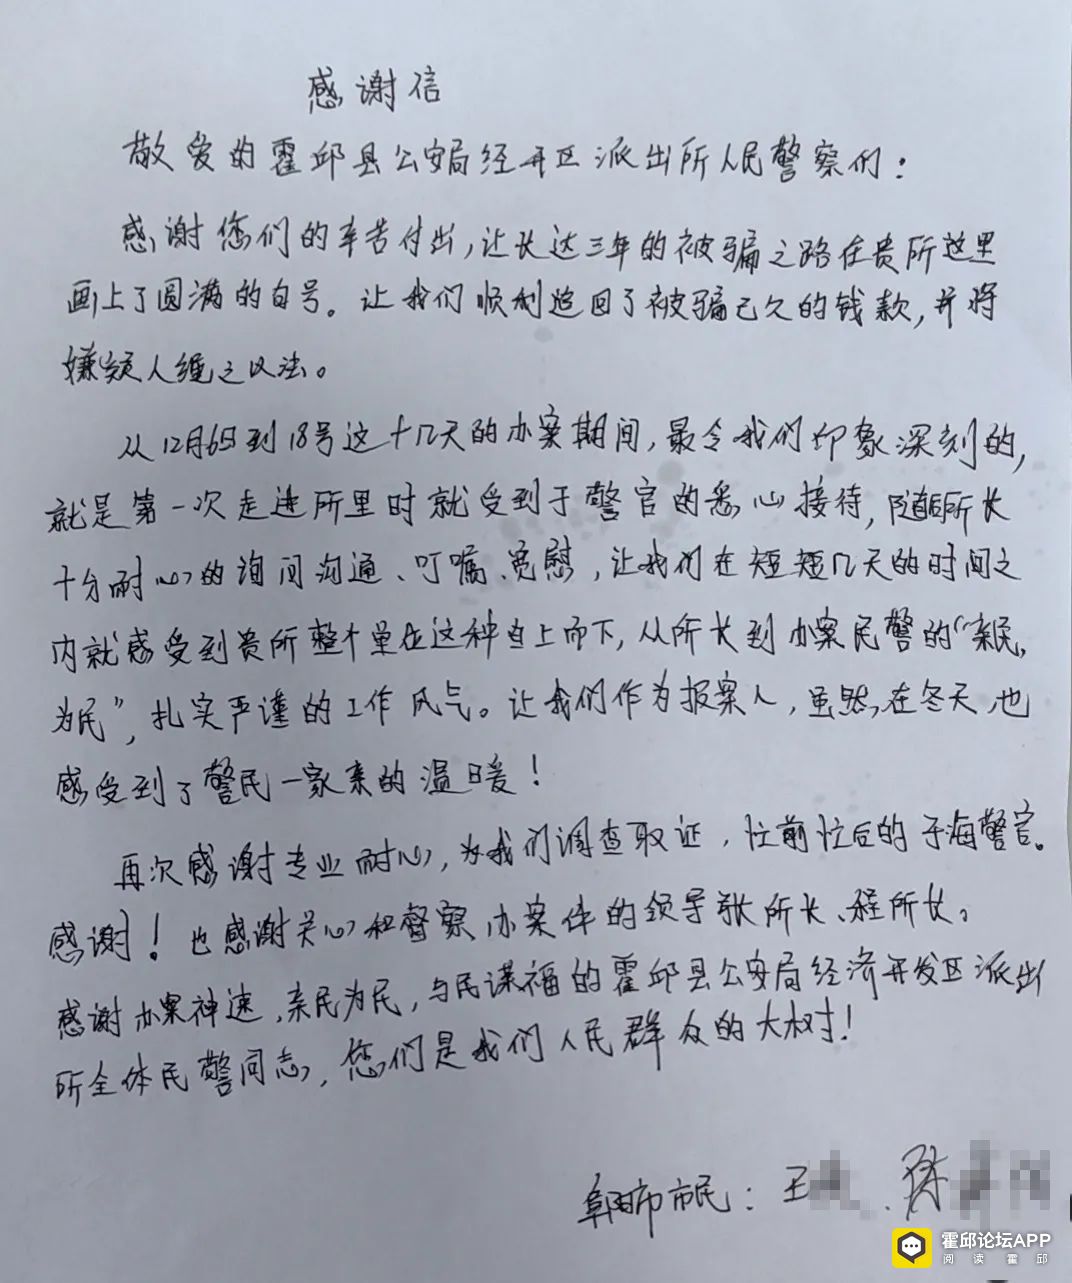 感谢信
敬爱的霍邱县公安局经开区派出所人民警察们：
感谢您们的辛苦付出，让长达三年的被骗之路在贵所这里
画上了圆满的句号。让我们顺利追回了被骗已久的钱款，并将
嫌疑人绳之以法。
从12月6日到18号这十几天的办案期间，最令我们印象深刻的，
就是第一次走进所里时就受到于警官的悉心接待，随后所长
十分耐心的询问沟通、叮嘱、宽慰，让我们在短短几天的时间之
内就感受到贵所整个单位这种自上而下，从所长到办案民警的“亲民，
为民”，扎实严谨的工作风气。让我们作为报案人，虽然，在冬天，也
感受到了警民一家亲的温暖！
再次感谢专业耐心，为我们调查取证，忙前忙后的于海警官。
感谢！也感谢关心和督察办案件的领导张所长、程所长；
感谢办案神速，亲民为民，与民谋福的霍邱县公安局经济开发区派出
所全体民警同志，您们是我们人民群众的大树！
阜阳市市民：王 、陈
霍邱论坛APP
阅读霍邱